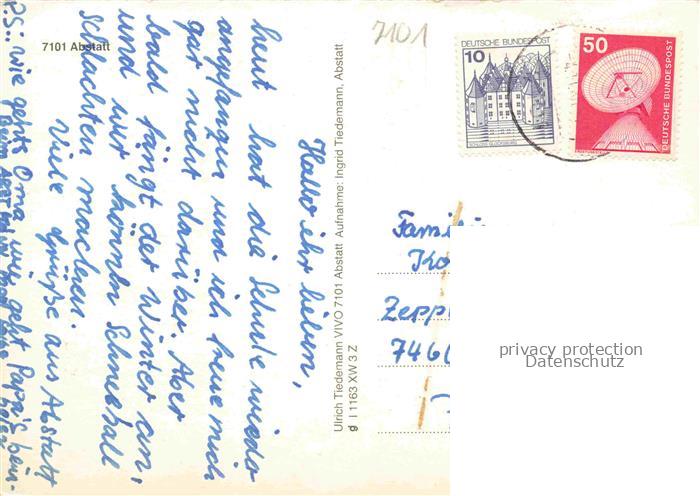 7101 Abstatt
Hallo ihr lieben,
heut hat die Schule wieder
angefangen und ich freue mich
gar nicht darüber. Aber
bald fängt der Winter an,
und wir können Schneeball
schlachten machen.
Viele Grüße aus Abstatt
PS.: wie gehts Oma wie geht Papa's bein-
Beim Arzt
Ulrich Tiedemann VIVO 7101 Abstatt Aufnahme: Ingrid Tiedemann, Abstatt
g I 1163 XW 3 Z
7101
DEUTSCHE BUNDESPOST
10
SCHLOSS GLÜCKSBURG
50
DEUTSCHE BUNDESPOST
Famili
Ko
Zepp
746
privacy protection
Datenschutz